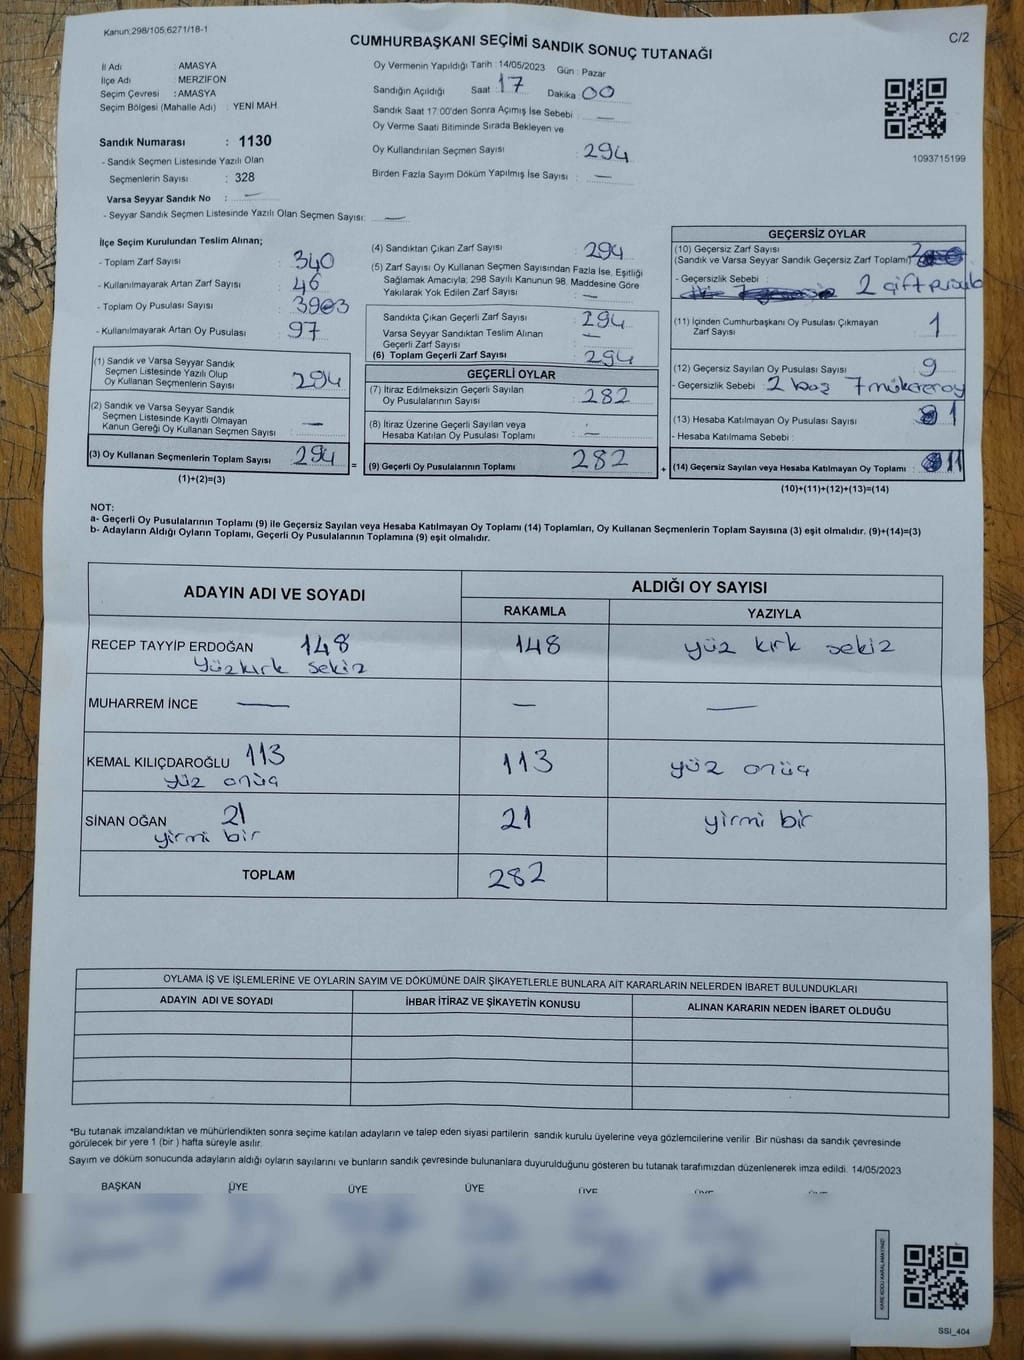 Kanun;298/105;6271/18-1
C/2
CUMHURBAŞKANI SEÇİMİ SANDIK SONUÇ TUTANAĞI
İl Adı : AMASYA
İlçe Adı : MERZİFON
Seçim Çevresi : AMASYA
Seçim Bölgesi (Mahalle Adı) : YENİ MAH.
Sandık Numarası : 1130
- Sandık Seçmen Listesinde Yazılı Olan
Seçmenlerin Sayısı : 328
Varsa Seyyar Sandık No : —
- Seyyar Sandık Seçmen Listesinde Yazılı Olan Seçmen Sayısı: —
Oy Vermenin Yapıldığı Tarih : 14/05/2023 Gün : Pazar
Sandığın Açıldığı Saat : 17 Dakika 00
Sandık Saat 17:00'den Sonra Açımış İse Sebebi : —
Oy Verme Saati Bitiminde Sırada Bekleyen ve
Oy Kullandırılan Seçmen Sayısı : 294
Birden Fazla Sayım Döküm Yapılmış İse Sayısı : —
1093715199
İlçe Seçim Kurulundan Teslim Alınan;
- Toplam Zarf Sayısı : 340
- Kullanılmayarak Artan Zarf Sayısı : 46
- Toplam Oy Pusulası Sayısı :
- Kullanılmayarak Artan Oy Pusulası : 97
(1) Sandık ve Varsa Seyyar Sandık
Seçmen Listesinde Yazılı Olup
Oy Kullanan Seçmenlerin Sayısı : 294
(2) Sandık ve Varsa Seyyar Sandık
Seçmen Listesinde Kayıtlı Olmayan
Kanun Gereği Oy Kullanan Seçmen Sayısı : —
(3) Oy Kullanan Seçmenlerin Toplam Sayısı : 294
(1)+(2)=(3)
(4) Sandıktan Çıkan Zarf Sayısı : 294
(5) Zarf Sayısı Oy Kullanan Seçmen Sayısından Fazla İse, Eşitliği
Sağlamak Amacıyla; 298 Sayılı Kanunun 98. Maddesine Göre
Yakılarak Yok Edilen Zarf Sayısı : —
Sandıkta Çıkan Geçerli Zarf Sayısı : 294
Varsa Seyyar Sandıktan Teslim Alınan
Geçerli Zarf Sayısı : —
(6) Toplam Geçerli Zarf Sayısı : 294
GEÇERLİ OYLAR
(7) İtiraz Edilmeksizin Geçerli Sayılan
Oy Pusulalarının Sayısı : 282
(8) İtiraz Üzerine Geçerli Sayılan veya
Hesaba Katılan Oy Pusulası Toplamı : —
= (9) Geçerli Oy Pusulalarının Toplamı : 282 +
GEÇERSİZ OYLAR
(10) Geçersiz Zarf Sayısı
(Sandık ve Varsa Seyyar Sandık Geçersiz Zarf Toplamı) :
- Geçersizlik Sebebi : 2 çift pusula
(11) İçinden Cumhurbaşkanı Oy Pusulası Çıkmayan
Zarf Sayısı : 1
(12) Geçersiz Sayılan Oy Pusulası Sayısı : 9
- Geçersizlik Sebebi : 2 boş 7 mükerer oy
(13) Hesaba Katılmayan Oy Pusulası Sayısı : 1
- Hesaba Katılmama Sebebi :
(14) Geçersiz Sayılan veya Hesaba Katılmayan Oy Toplamı : 11
(10)+(11)+(12)+(13)=(14)
NOT:
a- Geçerli Oy Pusulalarının Toplamı (9) ile Geçersiz Sayılan veya Hesaba Katılmayan Oy Toplamı (14) Toplamları, Oy Kullanan Seçmenlerin Toplam Sayısına (3) eşit olmalıdır. (9)+(14)=(3)
b- Adayların Aldığı Oyların Toplamı, Geçerli Oy Pusulalarının Toplamına (9) eşit olmalıdır.
ADAYIN ADI VE SOYADI
ALDIĞI OY SAYISI
RAKAMLA YAZIYLA
RECEP TAYYİP ERDOĞAN 148 148 yüz kırk sekiz
yüzkırk sekiz
MUHARREM İNCE — — —
KEMAL KILIÇDAROĞLU 113 113 yüz onüç
yüz onüç
SİNAN OĞAN 21 21 yirmi bir
yirmi bir
TOPLAM 282
OYLAMA İŞ VE İŞLEMLERİNE VE OYLARIN SAYIM VE DÖKÜMÜNE DAİR ŞİKAYETLERLE BUNLARA AİT KARARLARIN NELERDEN İBARET BULUNDUKLARI
ADAYIN ADI VE SOYADI İHBAR İTİRAZ VE ŞİKAYETİN KONUSU ALINAN KARARIN NEDEN İBARET OLDUĞU
*Bu tutanak imzalandıktan ve mühürlendikten sonra seçime katılan adayların ve talep eden siyasi partilerin sandık kurulu üyelerine veya gözlemcilerine verilir. Bir nüshası da sandık çevresinde
görülecek bir yere 1 (bir ) hafta süreyle asılır.
Sayım ve döküm sonucunda adayların aldığı oyların sayılarını ve bunların sandık çevresinde bulunanlara duyurulduğunu gösteren bu tutanak tarafımızdan düzenlenerek imza edildi. 14/05/2023
BAŞKAN ÜYE ÜYE ÜYE ÜYE
KARE KODU KARALAMAYINIZ!
SSI_404